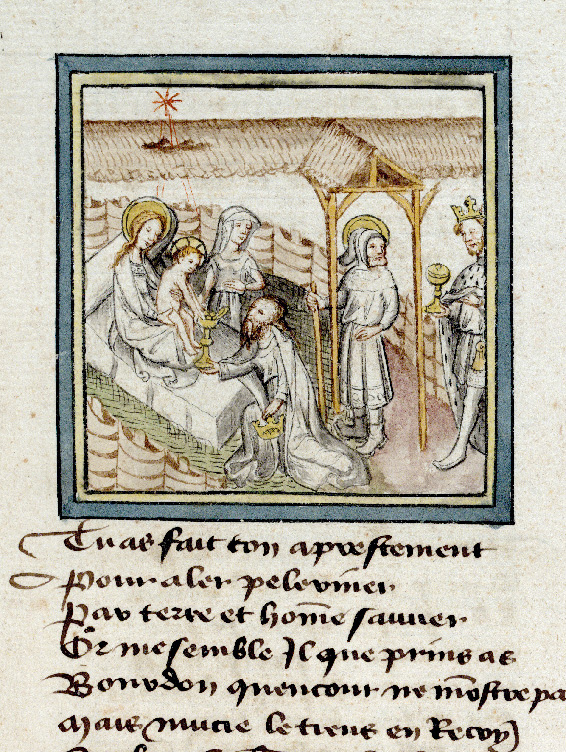 Tu as fait ton aprestement
Pour aler peleriner
Par terre et hom̅e sauuer
Or me semble Il que prins as
Bourdon quencour ne mo̅stre pa
Mais mucie le tiens en Recoy